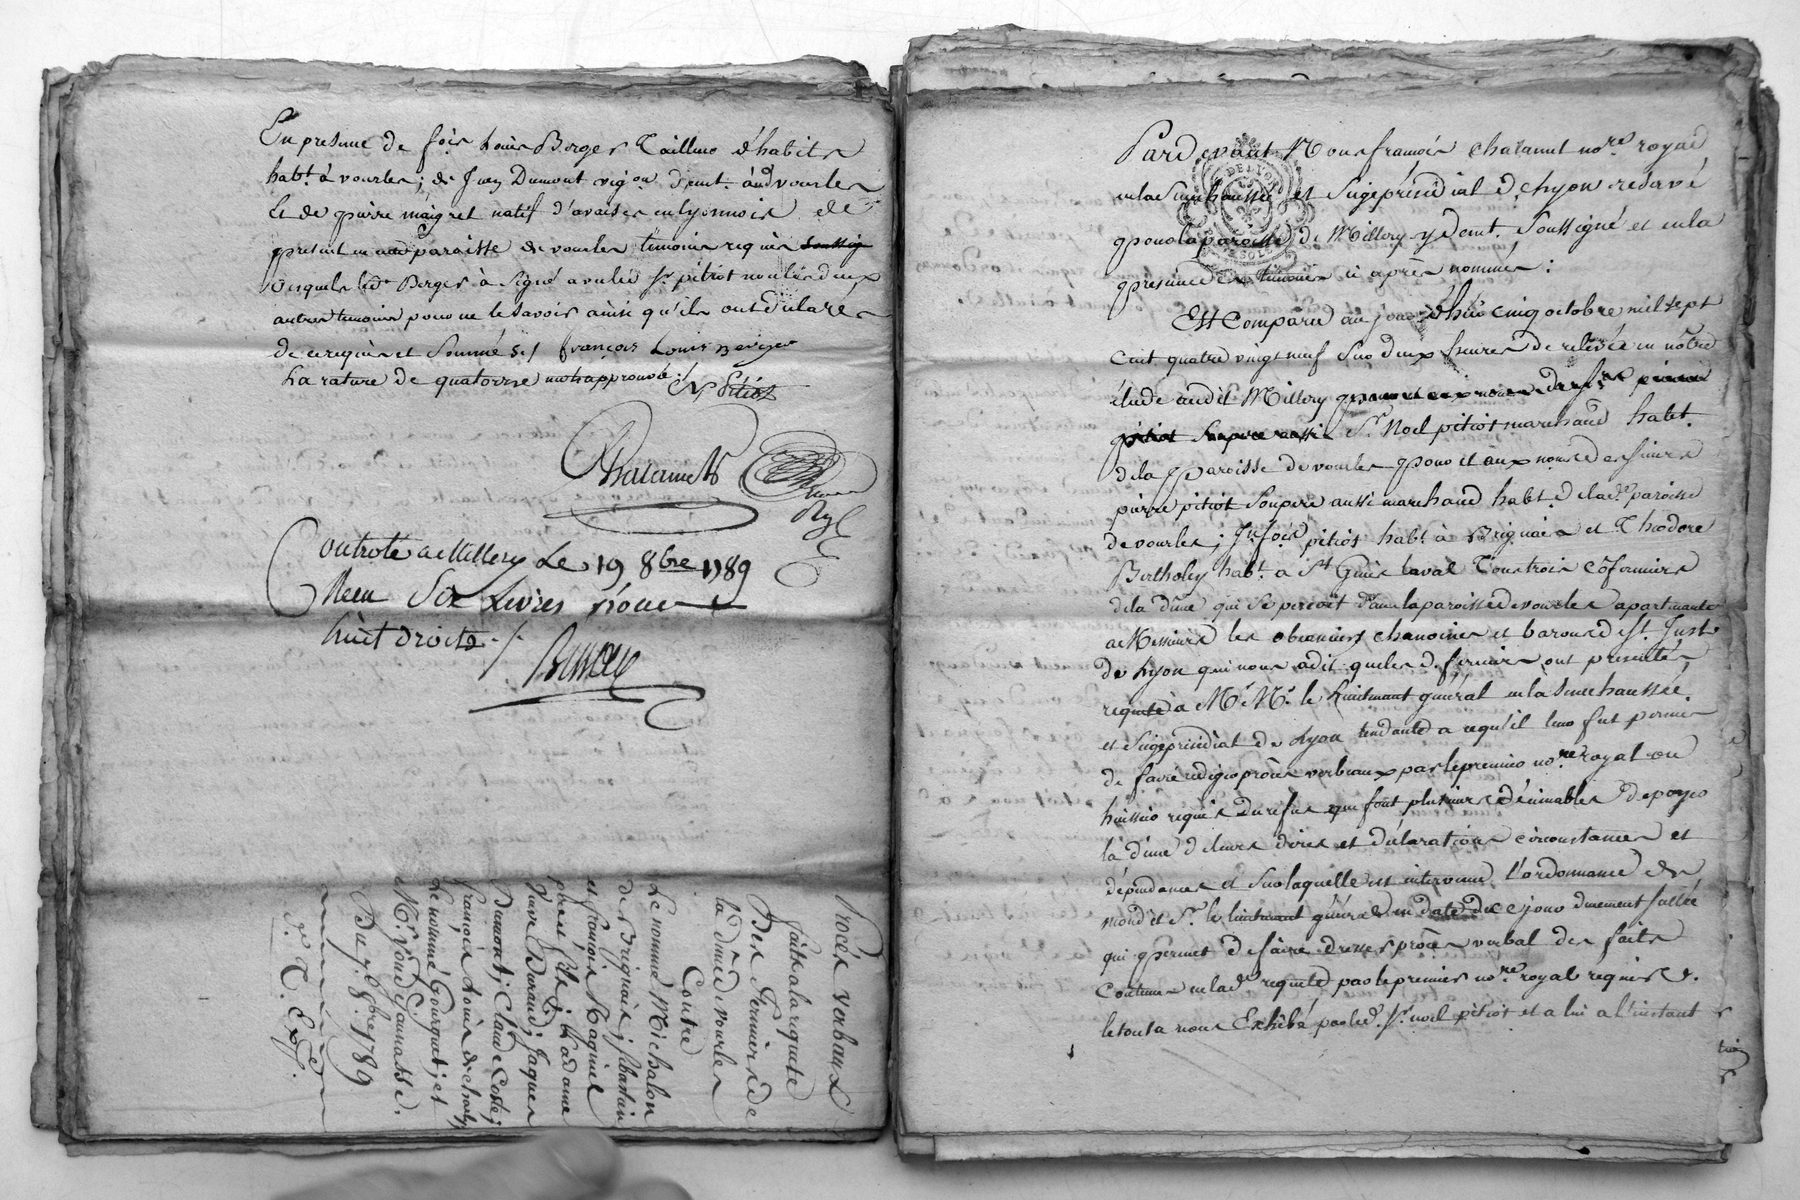 En presence de fois Louis Berger Tailleur d'habits
habt. à vourles; de Jean Dumont vigon. demt. aud vourles
Et de pierre maigret natif d'avaises en lyonnois de
present en parroisse de vourles temoins requis soussig
desquels led. Berger à signé avec led Sr. pitiot non les deux
autres temoins pour ne le savoir ainsi qu'ils ont declarer
de ce requis et sommé S./ françois Louis Berger
La rature de quatorze mots approuvée ./. N Pitiot
Chazamets
Controle a Millery Le 19 8bre 1789
Recu Six Livres pour
huit droits ./.
Procès verbaux
faits a la requete
Des Fermiers de
la dîme de vourles
Contre
Le nommé Michalon
de Brignais; sebastien
et françois Maguiet
pere et fils; Madame
veuve Durand; Jaques
Dumont; Claude Coste;
françois Louis de Charly
Le nommé Gourguet; et
Mr. vond Jamasse.
Du 7e. 8bre 1789
2e. T. Exp.
Pardevant Nous framcois Chazamet nore royal
en la Senechaussée et Siège présidial de Lyon reservé
pour la paroisse de Millery y demt. Soussigné et en la
presence des temoins ci après nommés:
Est Comparu au jourd'hui cinq octobre mil sept
cent quatre vingt neuf Sur deux heures de relevée en nôtre
étude audit Millery
pitiot Son pere aussi Sr. Noel pitiot marchand habt.
de la paroisse de vourles pour et aux noms de sieurs
pierre pitiot Son pere aussi marchand habt. de lade. paroisse
de vourles; Jn. fois pitiot habt à Brignais et Theodore
Bertholey habt. a St Genis laval Tous trois cofermiers
de la dîme qui se percoit dans la paroisse de vourles apartenante
a Messieurs les obeanciers chanoines et barons de St. Just
de Lyon qui nous a dit que les d. fermiers ont presenté
requete à Mr. Mr. le Lieutenant général en la Senechaussée
et Siège présidial de Lyon tendante a ce qu'il leur fut permis
de faire rediger procès verbaux par le premier nore royal ou
huissier requis du refus que font plusieurs décimables de payer
la dîme de leurs dires et déclarations circonstances et
dépendances et sur laquelle est intervenu L'ordonnance de
mondit Sr. le lieutenant général en date du ce jour duement sellée
qui permet de faire dresser procès verbal des faits
Contenus en lade requete par le premier nore royal requis d.
le tout a nous Exhibé par led. Sr. noel pitiot et a lui a l'instant